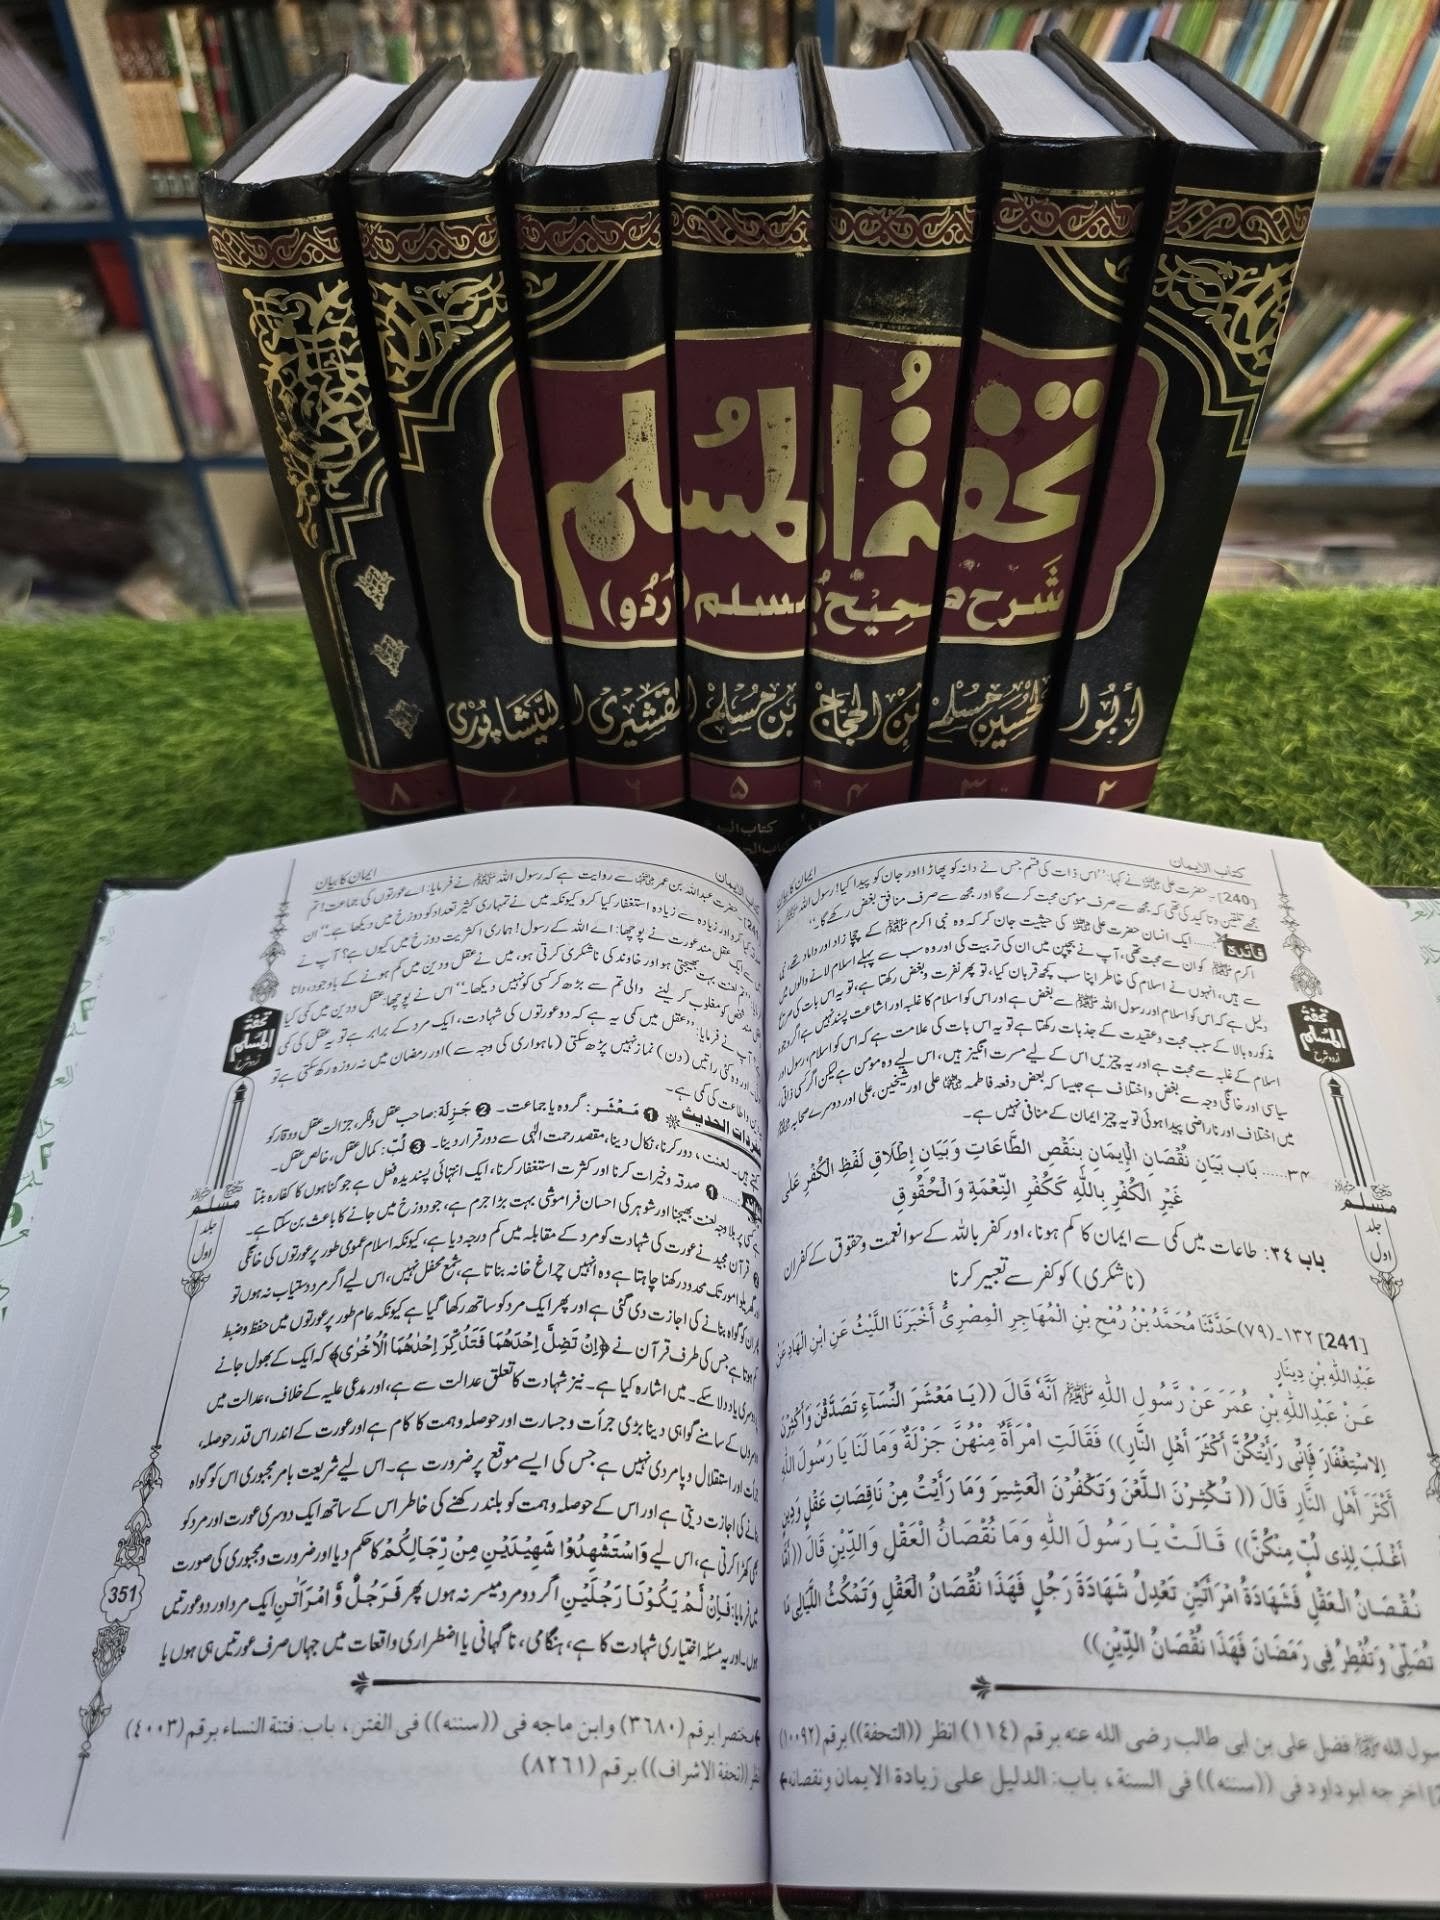 تحفۃُ المُسلم
شرح صحیح مُسلم (اُردُو)
أبُوا لحُسین مُسلم بن الحجّاج بن مُسلم القشیری النّیشاپوری
٨ ٧ ٦ ٥ ٤ ٣ ٢
کتاب الایمان
ایمان کا بیان
[240]۔ حضرت علی ﷜ نے کہا: ''اس ذات کی قسم جس نے دانہ کو پھاڑا اور جان کو پیدا کیا! رسول اللہ ﷺ نے
مجھے تلقین و تاکید کی تھی کہ مجھ سے صرف مومن محبت کرے گا اور مجھ سے صرف منافق بغض رکھے گا۔''
فائدہ ...... ایک انسان حضرت علی ﷜ کی حیثیت جان کر کہ وہ نبی اکرم ﷺ کے چچا زاد اور داماد تھے،
اکرم ﷺ کو ان سے محبت تھی، آپ نے بچپن میں ان کی تربیت کی اور وہ سب سے پہلے اسلام لانے والوں میں
سے ہیں، انہوں نے اسلام کی خاطر اپنا سب کچھ قربان کیا، تو پھر نفرت و بغض رکھتا ہے، تو یہ اس بات کی صریح
دلیل ہے کہ اس کو اسلام اور رسول اللہ ﷺ سے بغض ہے اور اس کو اسلام کا غلبہ اور اشاعت پسند نہیں ہے اگر وجوہ
مذکورہ بالا کے سبب محبت و عقیدت کے جذبات رکھتا ہے تو یہ اس بات کی علامت ہے کہ اس کو اسلام، رسول اور
اسلام کے غلبہ سے محبت ہے اور یہ چیزیں اس کے لیے مسرت انگیز ہیں، اس لیے وہ مومن ہے لیکن اگر کسی ذاتی،
سیاسی اور خانگی وجہ سے بغض و اختلاف ہے جیسا کہ بعض دفعہ فاطمہ ﷞ علی اور شیخین، علی اور دوسرے صحابہ
میں اختلاف اور ناراضی پیدا ہوئی تو یہ چیز ایمان کے منافی نہیں ہے۔
٣٤...... بَاب بَيَانِ نُقْصَانِ الْإِيمَانِ بِنَقْصِ الطَّاعَاتِ وَبَيَانِ إِطْلَاقِ لَفْظِ الْكُفْرِ عَلَى
غَيْرِ الْكُفْرِ بِاللَّهِ كَكُفْرِ النِّعْمَةِ وَالْحُقُوقِ
باب ٣٤: طاعات میں کمی سے ایمان کا کم ہونا، اور کفر باللہ کے سوا نعمت و حقوق کے کفران
(ناشکری) کو کفر سے تعبیر کرنا
[241] ١٣٢۔(٧٩) حَدَّثَنَا مُحَمَّدُ بْنُ رُمْحِ بْنِ الْمُهَاجِرِ الْمِصْرِيُّ أَخْبَرَنَا اللَّيْثُ عَنِ ابْنِ الْهَادِ عَنْ
عَبْدِاللَّهِ بْنِ دِينَارٍ
عَنْ عَبْدِاللَّهِ بْنِ عُمَرَ عَنْ رَسُولِ اللَّهِ ﷺ أَنَّهُ قَالَ ((يَا مَعْشَرَ النِّسَاءِ تَصَدَّقْنَ وَأَكْثِرْنَ
الِاسْتِغْفَارَ فَإِنِّي رَأَيْتُكُنَّ أَكْثَرَ أَهْلِ النَّارِ)) فَقَالَتِ امْرَأَةٌ مِنْهُنَّ جَزْلَةٌ وَمَا لَنَا يَا رَسُولَ اللَّهِ
أَكْثَرَ أَهْلِ النَّارِ قَالَ ((تُكْثِرْنَ اللَّعْنَ وَتَكْفُرْنَ الْعَشِيرَ وَمَا رَأَيْتُ مِنْ نَاقِصَاتِ عَقْلٍ وَدِينٍ
أَغْلَبَ لِذِي لُبٍّ مِنْكُنَّ)) قَالَتْ يَا رَسُولَ اللَّهِ وَمَا نُقْصَانُ الْعَقْلِ وَالدِّينِ قَالَ ((أَمَّا
نُقْصَانُ الْعَقْلِ فَشَهَادَةُ امْرَأَتَيْنِ تَعْدِلُ شَهَادَةَ رَجُلٍ فَهَذَا نُقْصَانُ الْعَقْلِ وَتَمْكُثُ اللَّيَالِي مَا
تُصَلِّي وَتُفْطِرُ فِي رَمَضَانَ فَهَذَا نُقْصَانُ الدِّينِ))
رسول الله ﷺ فضل علی بن ابی طالب رضی الله عنه برقم (١١٤) انظر ((التحفة)) برقم (١٠٠٩٢)
اخرجه ابو داود فی ((سننه)) فی السنة، باب: الدليل على زيادة الايمان ونقصانه
تحفۃ المسلم اردو شرح
صحیح مسلم
جلد اول
کتاب الایمان
ایمان کا بیان
[241]۔ حضرت عبداللہ بن عمر ﷠ سے روایت ہے کہ رسول اللہ ﷺ نے فرمایا: اے عورتوں کی جماعت! تم
صدقہ کیا کرو اور زیادہ سے زیادہ استغفار کیا کرو کیونکہ میں نے تمہاری کثیر تعداد کو دوزخ میں دیکھا ہے۔'' ان
سے ایک عقل مند عورت نے پوچھا: اے اللہ کے رسول! ہماری اکثریت دوزخ میں کیوں ہے؟ آپ نے
لعنت بہت بھیجتی ہو اور خاوند کی ناشکری کرتی ہو، میں نے عقل و دین میں کم ہونے کے باوجود، دانا
شخص کو مغلوب کر لینے والی تم سے بڑھ کر کسی کو نہیں دیکھا۔'' اس نے پوچھا: عقل و دین میں کمی کیا
آپ نے فرمایا: ''عقل میں کمی یہ ہے کہ دو عورتوں کی شہادت، ایک مرد کے برابر ہے تو یہ عقل کی کمی
اور وہ کئی راتیں (دن) نماز نہیں پڑھ سکتی (ماہواری کی وجہ سے) اور رمضان میں نہ روزہ رکھ سکتی ہے تو
و اطاعت کی کمی ہے۔
مفردات الحدیث ❶ مَعْشَر: گروہ یا جماعت۔ ❷ جَزِلَة: صاحب عقل و فکر، جزالت عقل و وقار کو
کہتے ہیں۔ لعنت، دور کرنا، نکال دینا، مقصد رحمت الٰہی سے دور قرار دینا۔ ❸ لُبّ: کمال عقل، خالص عقل۔
...... ❶ صدقہ و خیرات کرنا اور کثرت استغفار کرنا، ایک انتہائی پسندیدہ فعل ہے جو گناہوں کا کفارہ بنتا
ہے کسی پر بلاوجہ لعنت بھیجنا اور شوہر کی احسان فراموشی بہت بڑا جرم ہے، جو دوزخ میں جانے کا باعث بن سکتا ہے۔
قرآن مجید نے عورت کی شہادت کو مرد کے مقابلہ میں کم درجہ دیا ہے، کیونکہ اسلام عمومی طور پر عورتوں کی خانگی
اور گھریلو امور تک محدود رکھنا چاہتا ہے وہ انہیں چراغ خانہ بناتا ہے، شمع محفل نہیں، اس لیے اگر مرد دستیاب نہ ہوں تو
ان کو گواہ بنانے کی اجازت دی گئی ہے اور پھر ایک مرد کو ساتھ رکھا گیا ہے کیونکہ عام طور پر عورتوں میں حفظ و ضبط
کم ہوتا ہے جس کی طرف قرآن نے ﴿اِنْ تَضِلَّ اِحْدٰهُمَا فَتُذَكِّرَ اِحْدٰهُمَا الْاُخْرٰى﴾ کہ ایک کے بھول جانے
دوسری یاد دلا سکے۔ میں اشارہ کیا ہے۔ نیز شہادت کا تعلق عدالت سے ہے، اور مدعی علیہ کے خلاف، عدالت میں
مردوں کے سامنے گواہی دینا بڑی جرأت و جسارت اور حوصلہ و ہمت کا کام ہے اور عورت کے اندر اس قدر حوصلہ،
جرأت اور استقلال و پامردی نہیں ہے جس کی ایسے موقع پر ضرورت ہے۔ اس لیے شریعت بامر مجبوری اس کو گواہ
بنانے کی اجازت دیتی ہے اور اس کے حوصلہ و ہمت کو بلند رکھنے کی خاطر اس کے ساتھ ایک دوسری عورت اور مرد کو
بھی کھڑا کرتی ہے، اس لیے وَاسْتَشْهِدُوْا شَهِيْدَيْنِ مِنْ رِّجَالِكُمْ کا حکم دیا اور ضرورت و مجبوری کی صورت
میں فرمایا: فَاِنْ لَّمْ يَكُوْنَا رَجُلَيْنِ اگر دو مرد میسر نہ ہوں پھر فَرَجُلٌ وَّامْرَاَتٰنِ ایک مرد اور دو عورتیں
ہوں۔ اور یہ مسئلہ اختیاری شہادت کا ہے، ہنگامی، ناگہانی یا اضطراری واقعات میں جہاں صرف عورتیں ہی ہوں یا
مختصرا برقم (٣٦٨٠) وابن ماجه فی ((سننه)) فی الفتن، باب: فتنة النساء برقم (٤٠٠٣)
انظر ((تحفة الاشراف)) برقم (٨٢٦١)
تحفۃ المسلم اردو شرح
صحیح مسلم
جلد اول
351